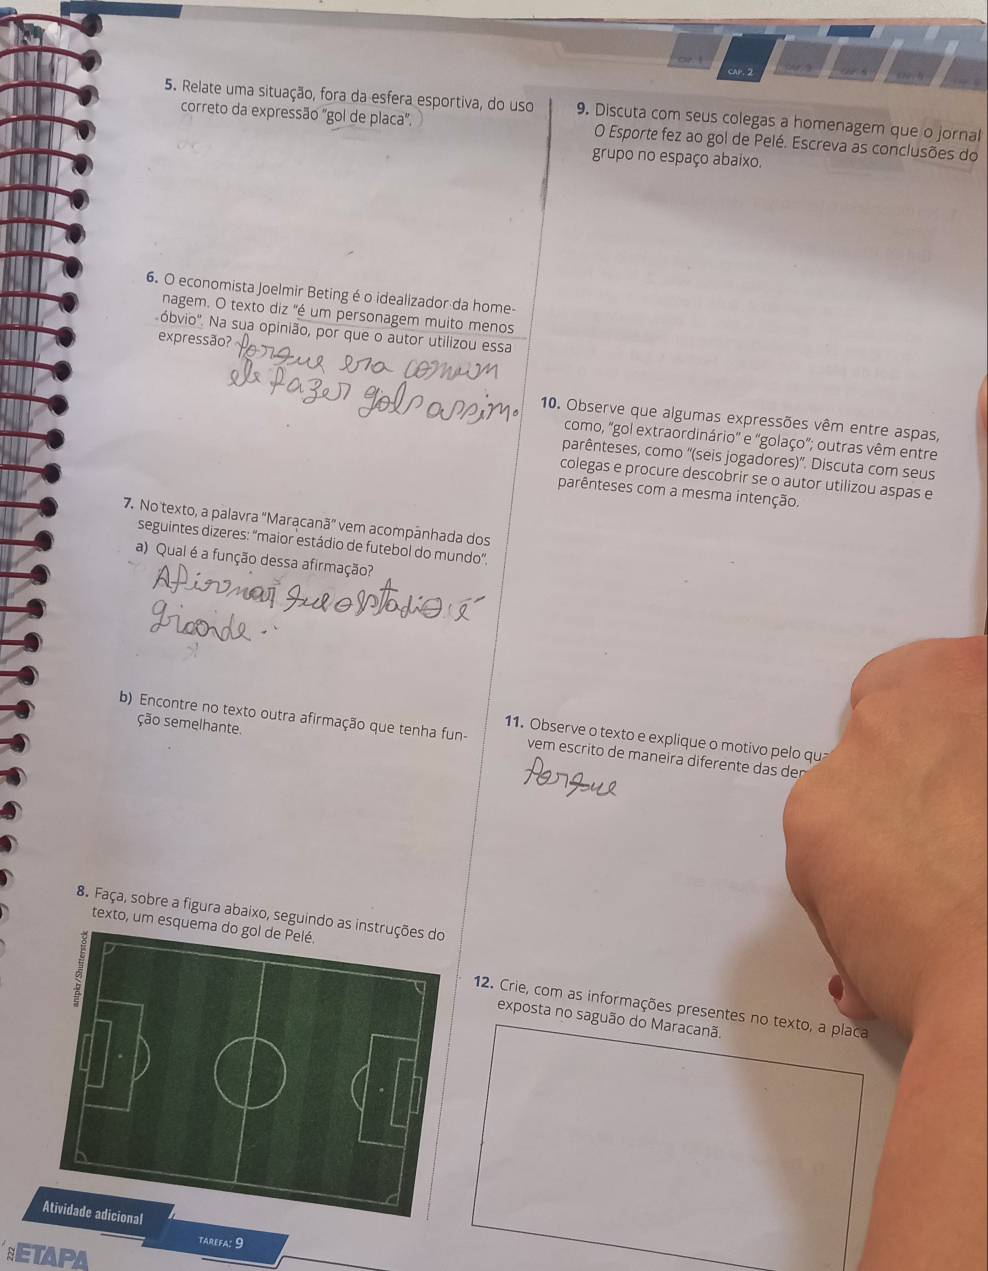 CAP. 2
5. Relate uma situação, fora da esfera esportiva, do uso
correto da expressão "gol de placa".
6. O economista Joelmir Beting é o idealizador da home-
nagem. O texto diz "é um personagem muito menos
óbvio". Na sua opinião, por que o autor utilizou essa
expressão? Porque era comum
ele fazer gols assim.
7. No texto, a palavra "Maracanã" vem acompanhada dos
seguintes dizeres: "maior estádio de futebol do mundo".
a) Qual é a função dessa afirmação?
Afirmar que o estadio é
grande.
b) Encontre no texto outra afirmação que tenha fun-
ção semelhante.
8. Faça, sobre a figura abaixo, seguindo as instruções do
texto, um esquema do gol de Pelé.
antpkr/Shutterstock
9. Discuta com seus colegas a homenagem que o jornal
O Esporte fez ao gol de Pelé. Escreva as conclusões do
grupo no espaço abaixo.
10. Observe que algumas expressões vêm entre aspas,
como, "gol extraordinário" e "golaço"; outras vêm entre
parênteses, como "(seis jogadores)". Discuta com seus
colegas e procure descobrir se o autor utilizou aspas e
parênteses com a mesma intenção.
11. Observe o texto e explique o motivo pelo qu
vem escrito de maneira diferente das de
Porque
12. Crie, com as informações presentes no texto, a placa
exposta no saguão do Maracanã.
Atividade adicional
TAREFA: 9
222
ETAPA